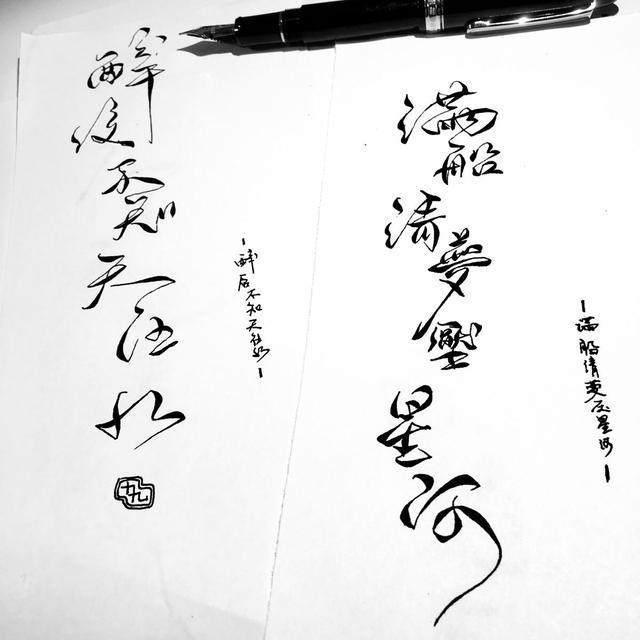 醉後不知天在水
-醉后不知天在水-
滿船清夢壓星河
-满船清梦压星河-